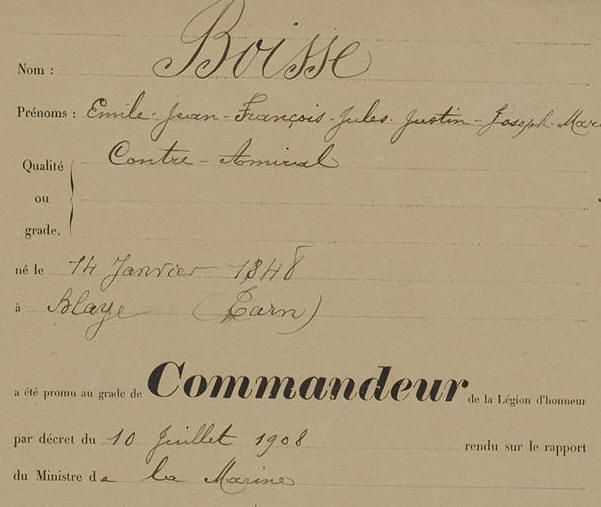 Nom : Boisse
Prénoms : Emile-Jean-François-Jules-Justin-Joseph-Mar
Qualité Contre-Amiral
ou
grade.
né le 14 Janvier 1848
à Blaye (Tarn)
a été promu au grade de Commandeur de la Légion d'honneur
par décret du 10 Juillet 1908 rendu sur le rapport
du Ministre de la Marine